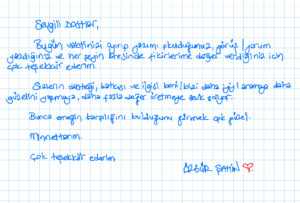 Sevgili Dostlar,
Bugün vaktinizi ayırıp yazımı okuduğunuz, görüş / yorum
yazdığınız ve her şeyin ötesinde fikirlerime değer verdiğiniz için
çok teşekkür ederim.
Sizlerin desteği, katkısı ve ilgisi beni / bizi daha iyiyi aramaya daha
güzelini yapmaya, daha fazla değer üretmeye sevk ediyor.
Bunca emeğin karşılığını bulduğunu görmek çok güzel.
Minnettarım.
Çok teşekkür ederim
ÖZGÜR ŞAHİN